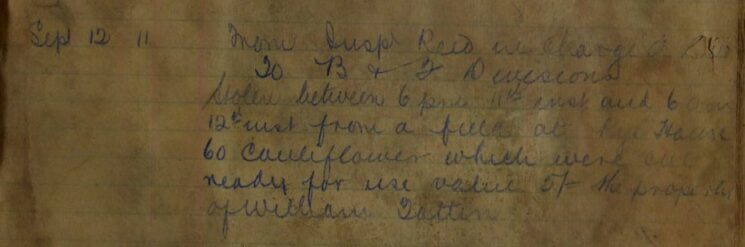 Sep 12 11 From Insp Reed in charge
To B & F Divisions
Stolen between 6 pm 11th inst and 6 am
12th inst from a field at Rye House
60 Cauliflower which were all
ready for use value 5/- the property
of William Tattin